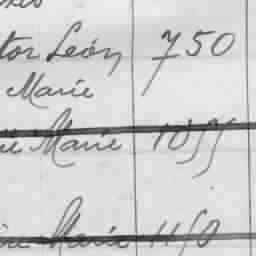 tor Léon 750
Marie
ne Marie 1055
ine Marie 1150